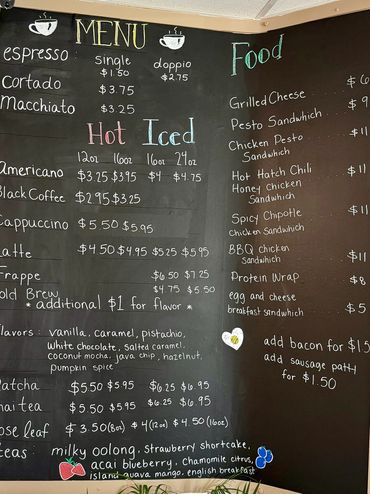 MENU
espresso : single doppio
$1.50 $2.75
Cortado $3.75
Macchiato $3.25
Hot Iced
12oz 16oz 16oz 24oz
Americano $3.25 $3.95 $4 $4.75
Black Coffee $2.95 $3.25
Cappuccino $5.50 $5.95
Latte $4.50 $4.95 $5.25 $5.95
Frappe $6.50 $7.25
Cold Brew $4.75 $5.50
* additional $1 for flavor *
flavors : vanilla, caramel, pistachio,
white chocolate, salted caramel,
coconut mocha, java chip, hazelnut,
pumpkin spice
$5.50 $5.95 $6.25 $6.95
tea $5.50 $5.95 $6.25 $6.95
leaf $3.50(8oz) $4(12oz) $4.50(16oz)
teas : milky oolong, strawberry shortcake,
acai blueberry, Chamomile citrus,
island guava mango, english breakfast
Food
Grilled Cheese $6
Pesto Sandwhich
Chicken Pesto $11
Sandwhich
Hot Hatch Chili $11
Honey chicken
Sandwhich
Spicy Chipotle $11
Chicken Sandwich
BBQ chicken $11
Sandwhich
Protein Wrap $8
egg and cheese $5
breakfast sandwhich
add bacon for
add sausage patty
for $1.50